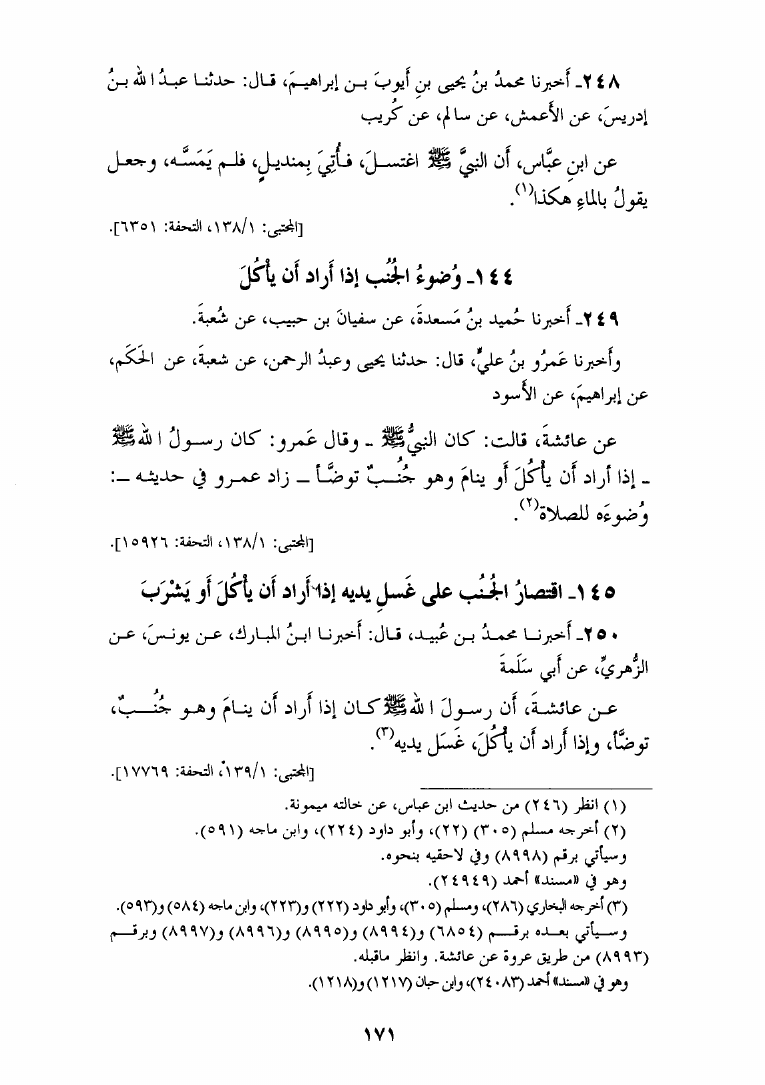 ٢٤٨ـ أَخبرنا محمدُ بنُ يحيى بنِ أَيوبَ بـن إبراهيـمَ، قـال: حدثنـا عبـدُ الله بـنُ
إدريسَ، عن الأَعمش، عن سالم، عن كُريب
عن ابنِ عبَّاس، أَن النبيَّ ﷺ اغتسـلَ، فـأُتِيَ بِمنديـلٍ، فلـم يَمَسَّـه، وجعـل
يقولُ بالماءِ هكذا(١).
[المجتبى: ١٣٨/١، التحفة: ٦٣٥١].
١٤٤ـ وُضوءُ الجُنُب إذا أَراد أَن يأكُلَ
٢٤٩ـ أَخبرنا حُميد بنُ مَسعدةَ، عن سفيانَ بن حبيب، عن شُعبةَ.
وأَخبرنا عَمرُو بنُ عليٍّ، قال: حدثنا يحيى وعبدُ الرحمن، عن شعبةَ، عن الحَكَم،
عن إبراهيمَ، عن الأَسود
عن عائشةَ، قالت: كان النبيُّ ﷺ ـ وقال عَمرو: كان رسـولُ الله ﷺ
ـ إذا أراد أَن يأكُلَ أَو ينامَ وهو جُنُـبٌ توضَّأ ـ زاد عمـرو في حديثـه ـ:
وُضوءَه للصلاة(٢).
[المجتبى: ١٣٨/١، التحفة: ١٥٩٢٦].
١٤٥ـ اقتصارُ الجُنُب على غَسلِ يديه إذا أَراد أَن يأكُلَ أَو يَشْرَبَ
٢٥٠ـ أَخبرنـا محمـدُ بـن عُبيـد، قـال: أَخبرنـا ابـنُ المبارك، عـن يونـسَ، عـن
الزُّهريِّ، عن أَبي سَلَمةَ
عـن عائشـةَ، أَن رسـولَ الله ﷺ كـان إذا أَراد أَن ينـامَ وهـو جُنُـبٌ،
توضَّأَ، وإذا أَراد أَن يأكُلَ، غَسَل يديه(٣).
[المجتبى: ١٣٩/١، التحفة: ١٧٧٦٩].
(١) انظر (٢٤٦) من حديث ابن عباس، عن خالته ميمونة.
(٢) أخرجه مسلم (٣٠٥) (٢٢)، وأبو داود (٢٢٤)، وابن ماجه (٥٩١).
وسيأتي برقم (٨٩٩٨) وفي لاحقيه بنحوه.
وهو في «مسند» أحمد (٢٤٩٤٩).
(٣) أخرجه البخاري (٢٨٦)، ومسلم (٣٠٥)، وأبو داود (٢٢٢) و(٢٢٣)، وابن ماجه (٥٨٤) و(٥٩٣).
وسـيأتي بعـده برقـم (٦٨٥٤) و(٨٩٩٤) و(٨٩٩٥) و(٨٩٩٦) و(٨٩٩٧) وبرقـم
(٨٩٩٣) من طريق عروة عن عائشة. وانظر ماقبله.
وهو في «مسند» أحمد (٢٤٠٨٣)، وابن حبان (١٢١٧) و(١٢١٨).
١٧١